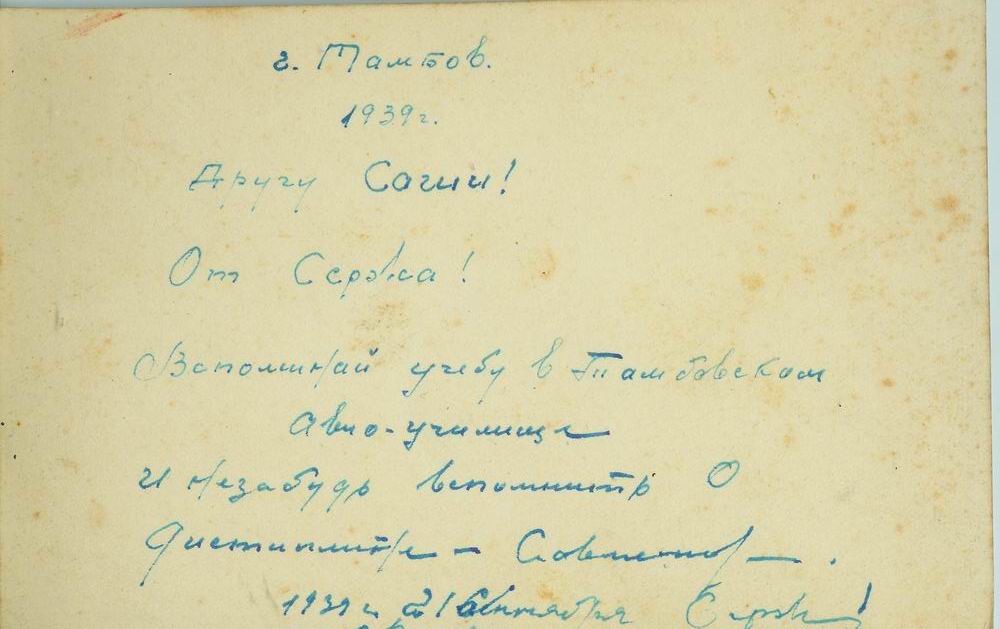 г. Тамбов.
1939г.
Другу Саши!
От Сержа!
Вспоминай учебу в Тамбовском
Авио-училище
и незабудь вспомнить о
дистиплине -
1939 г. 21 сентября Серж!